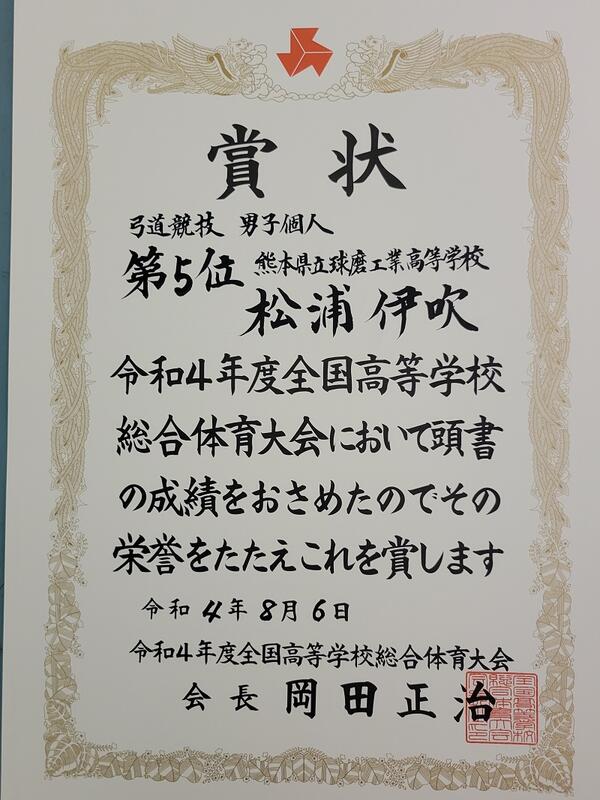 賞状
弓道競技 男子個人
第5位 熊本県立球磨工業高等学校
松浦伊吹
令和4年度全国高等学校
総合体育大会において頭書
の成績をおさめたのでその
栄誉をたたえこれを賞します
令和4年8月6日
令和4年度全国高等学校総合体育大会
会長 岡田正治